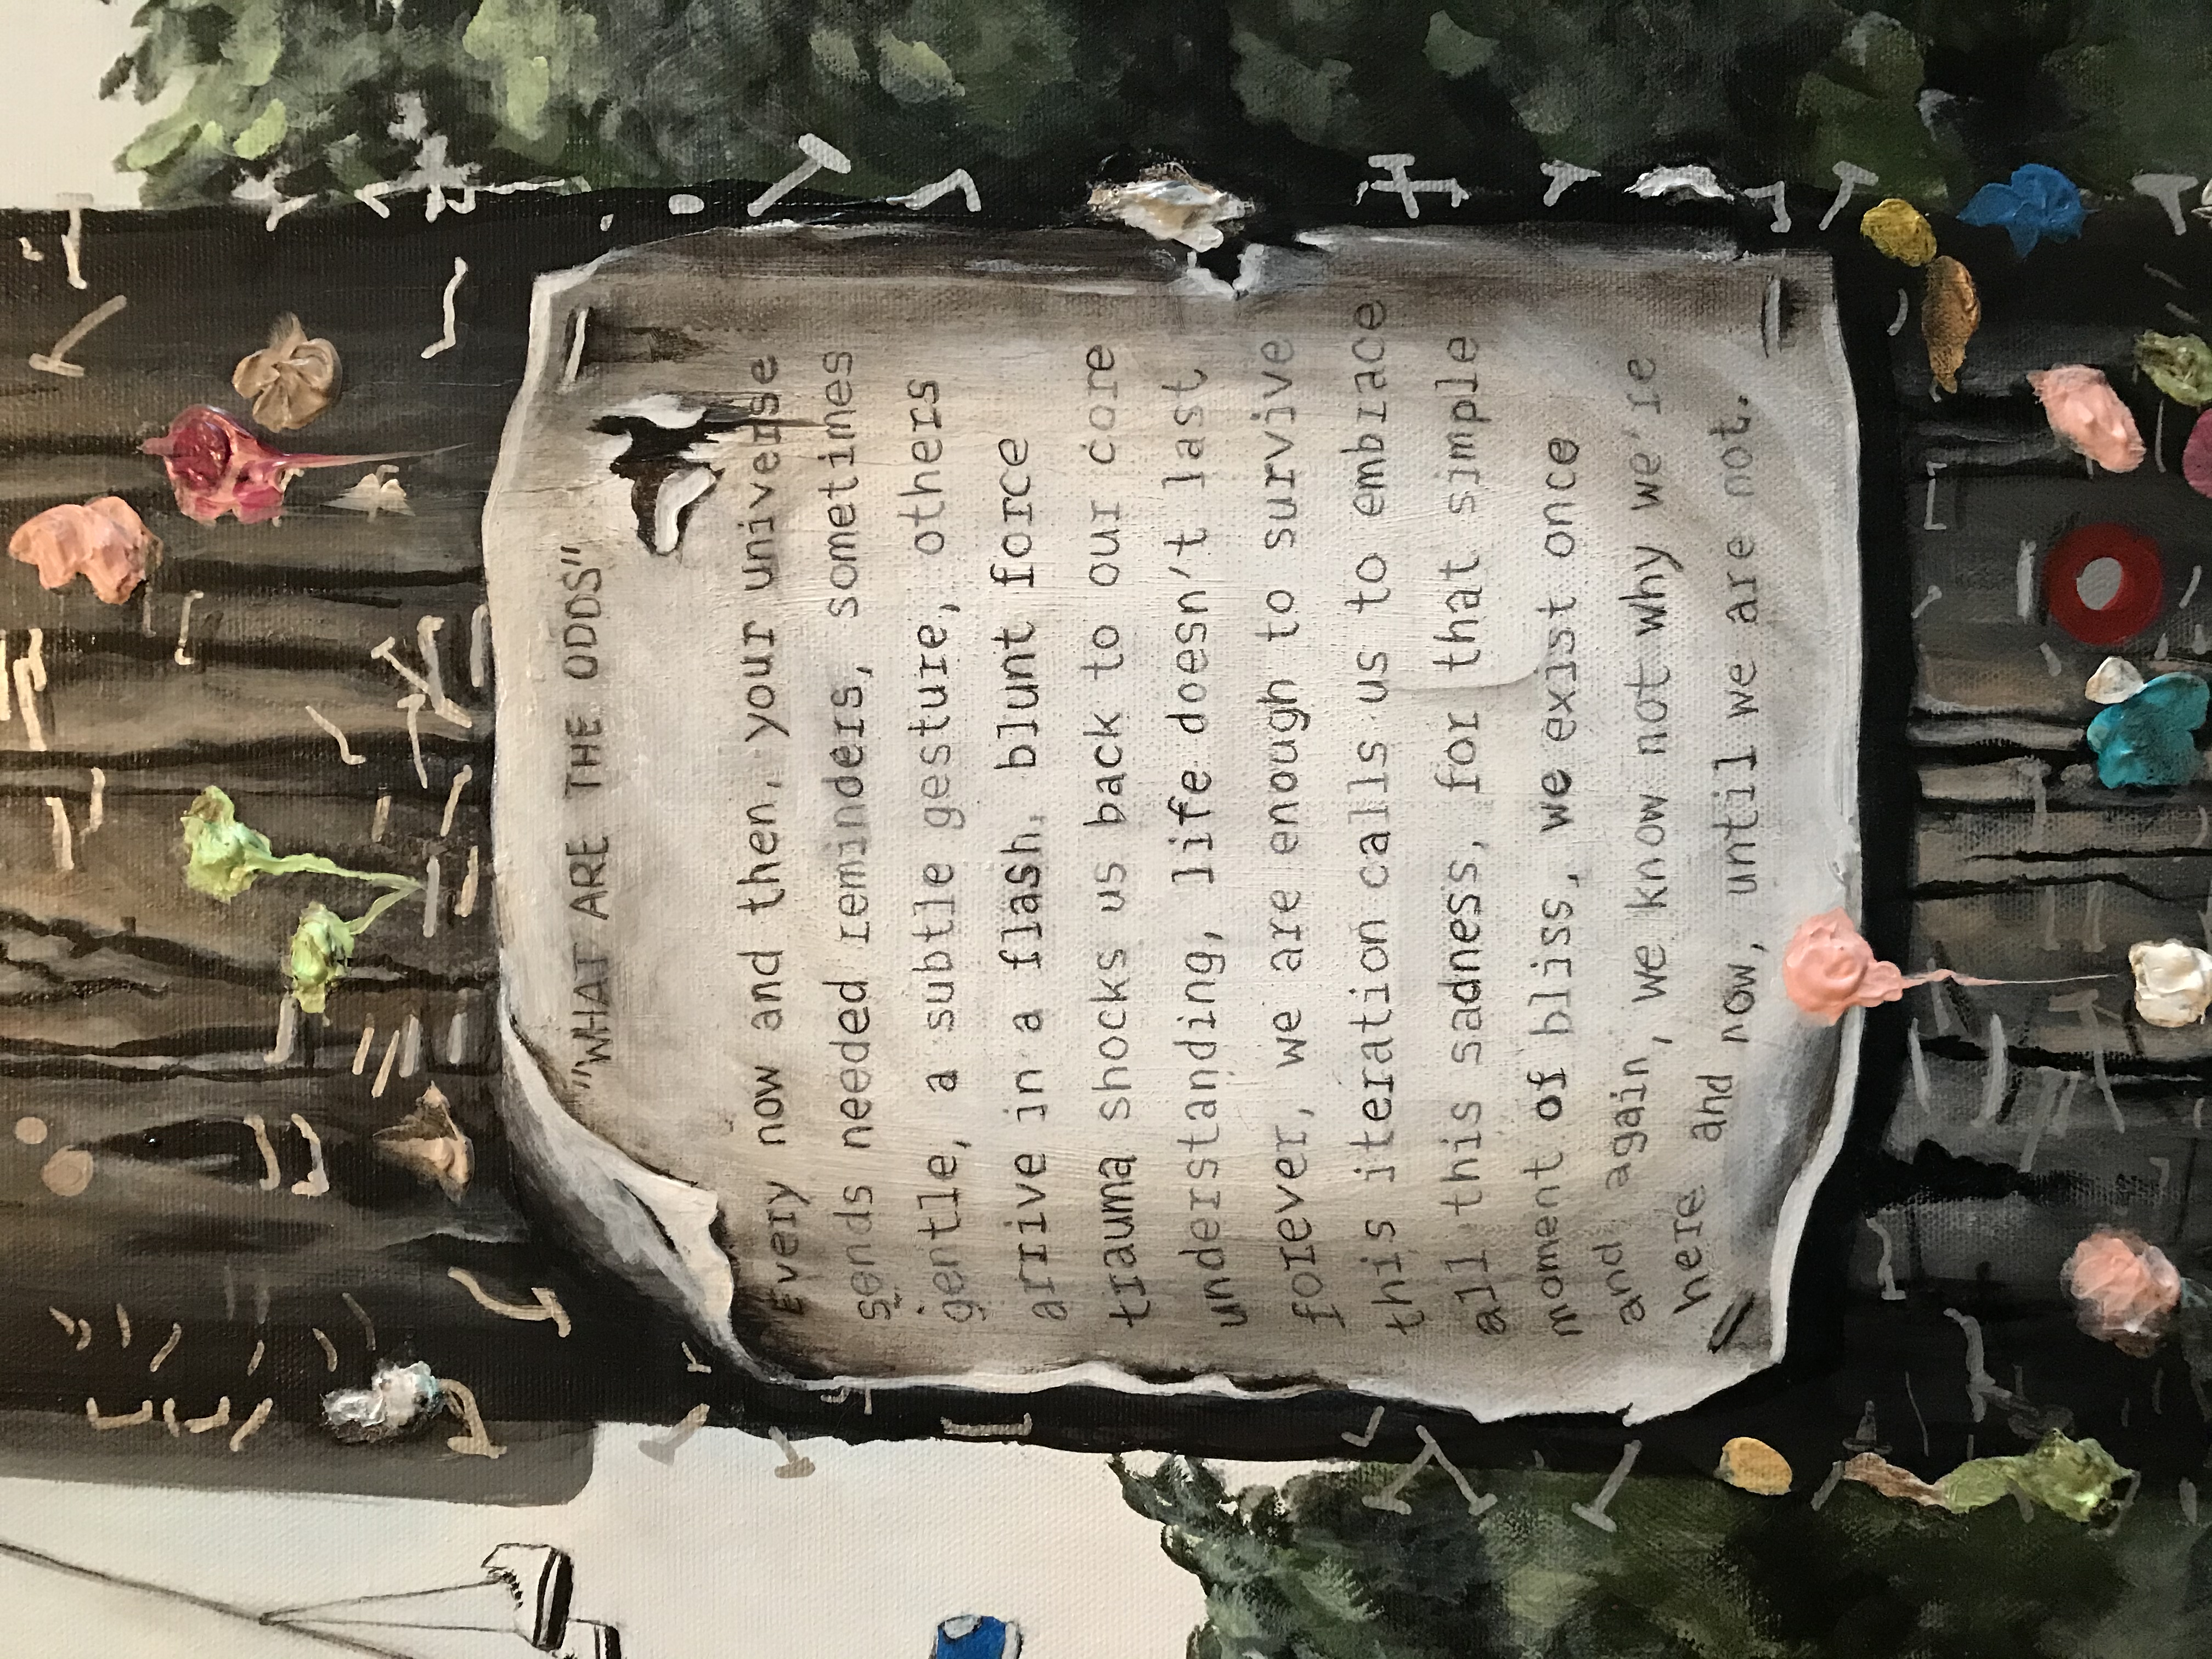 "WHAT ARE THE ODDS"
Every now and then, your universe
sends needed reminders, sometimes
gentle, a subtle gesture, others
arrive in a flash, blunt force
trauma shocks us back to our core
understanding, life doesn't last
forever, we are enough to survive
this iteration calls us to embrace
all this sadness, for that simple
moment of bliss, we exist once
and again, we know not why we're
here and now, until we are not.